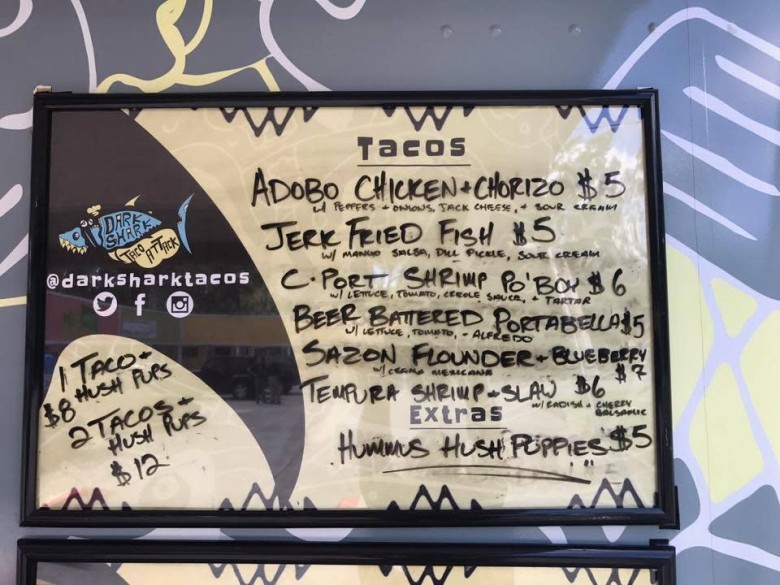 Tacos
ADOBO CHICKEN + CHORIZO $5
W/ PEPPERS + ONIONS, JACK CHEESE, + SOUR CREAM
JERK FRIED FISH $5
W/ MANGO SALSA, DILL PICKLE, SOUR CREAM
C-PORT SHRIMP PO'BOY $6
W/ LETTUCE, TOMATO, CREOLE SAUCE, + TARTAR
BEER BATTERED PORTABELLA $5
W/ LETTUCE, TOMATO, - ALFREDO
SAZON FLOUNDER + BLUEBERRY
W/ CREMA MEXICANA $7
TEMPURA SHRIMP + SLAW $6
W/ RADISH + CHERRY
BALSAMIC
Extras
HUMMUS HUSH PUPPIES $5
DARK
SHARK
TACO ATTACK
@darksharktacos
1 TACO +
HUSH PUPS
$8
2 TACOS +
HUSH PUPS
$12